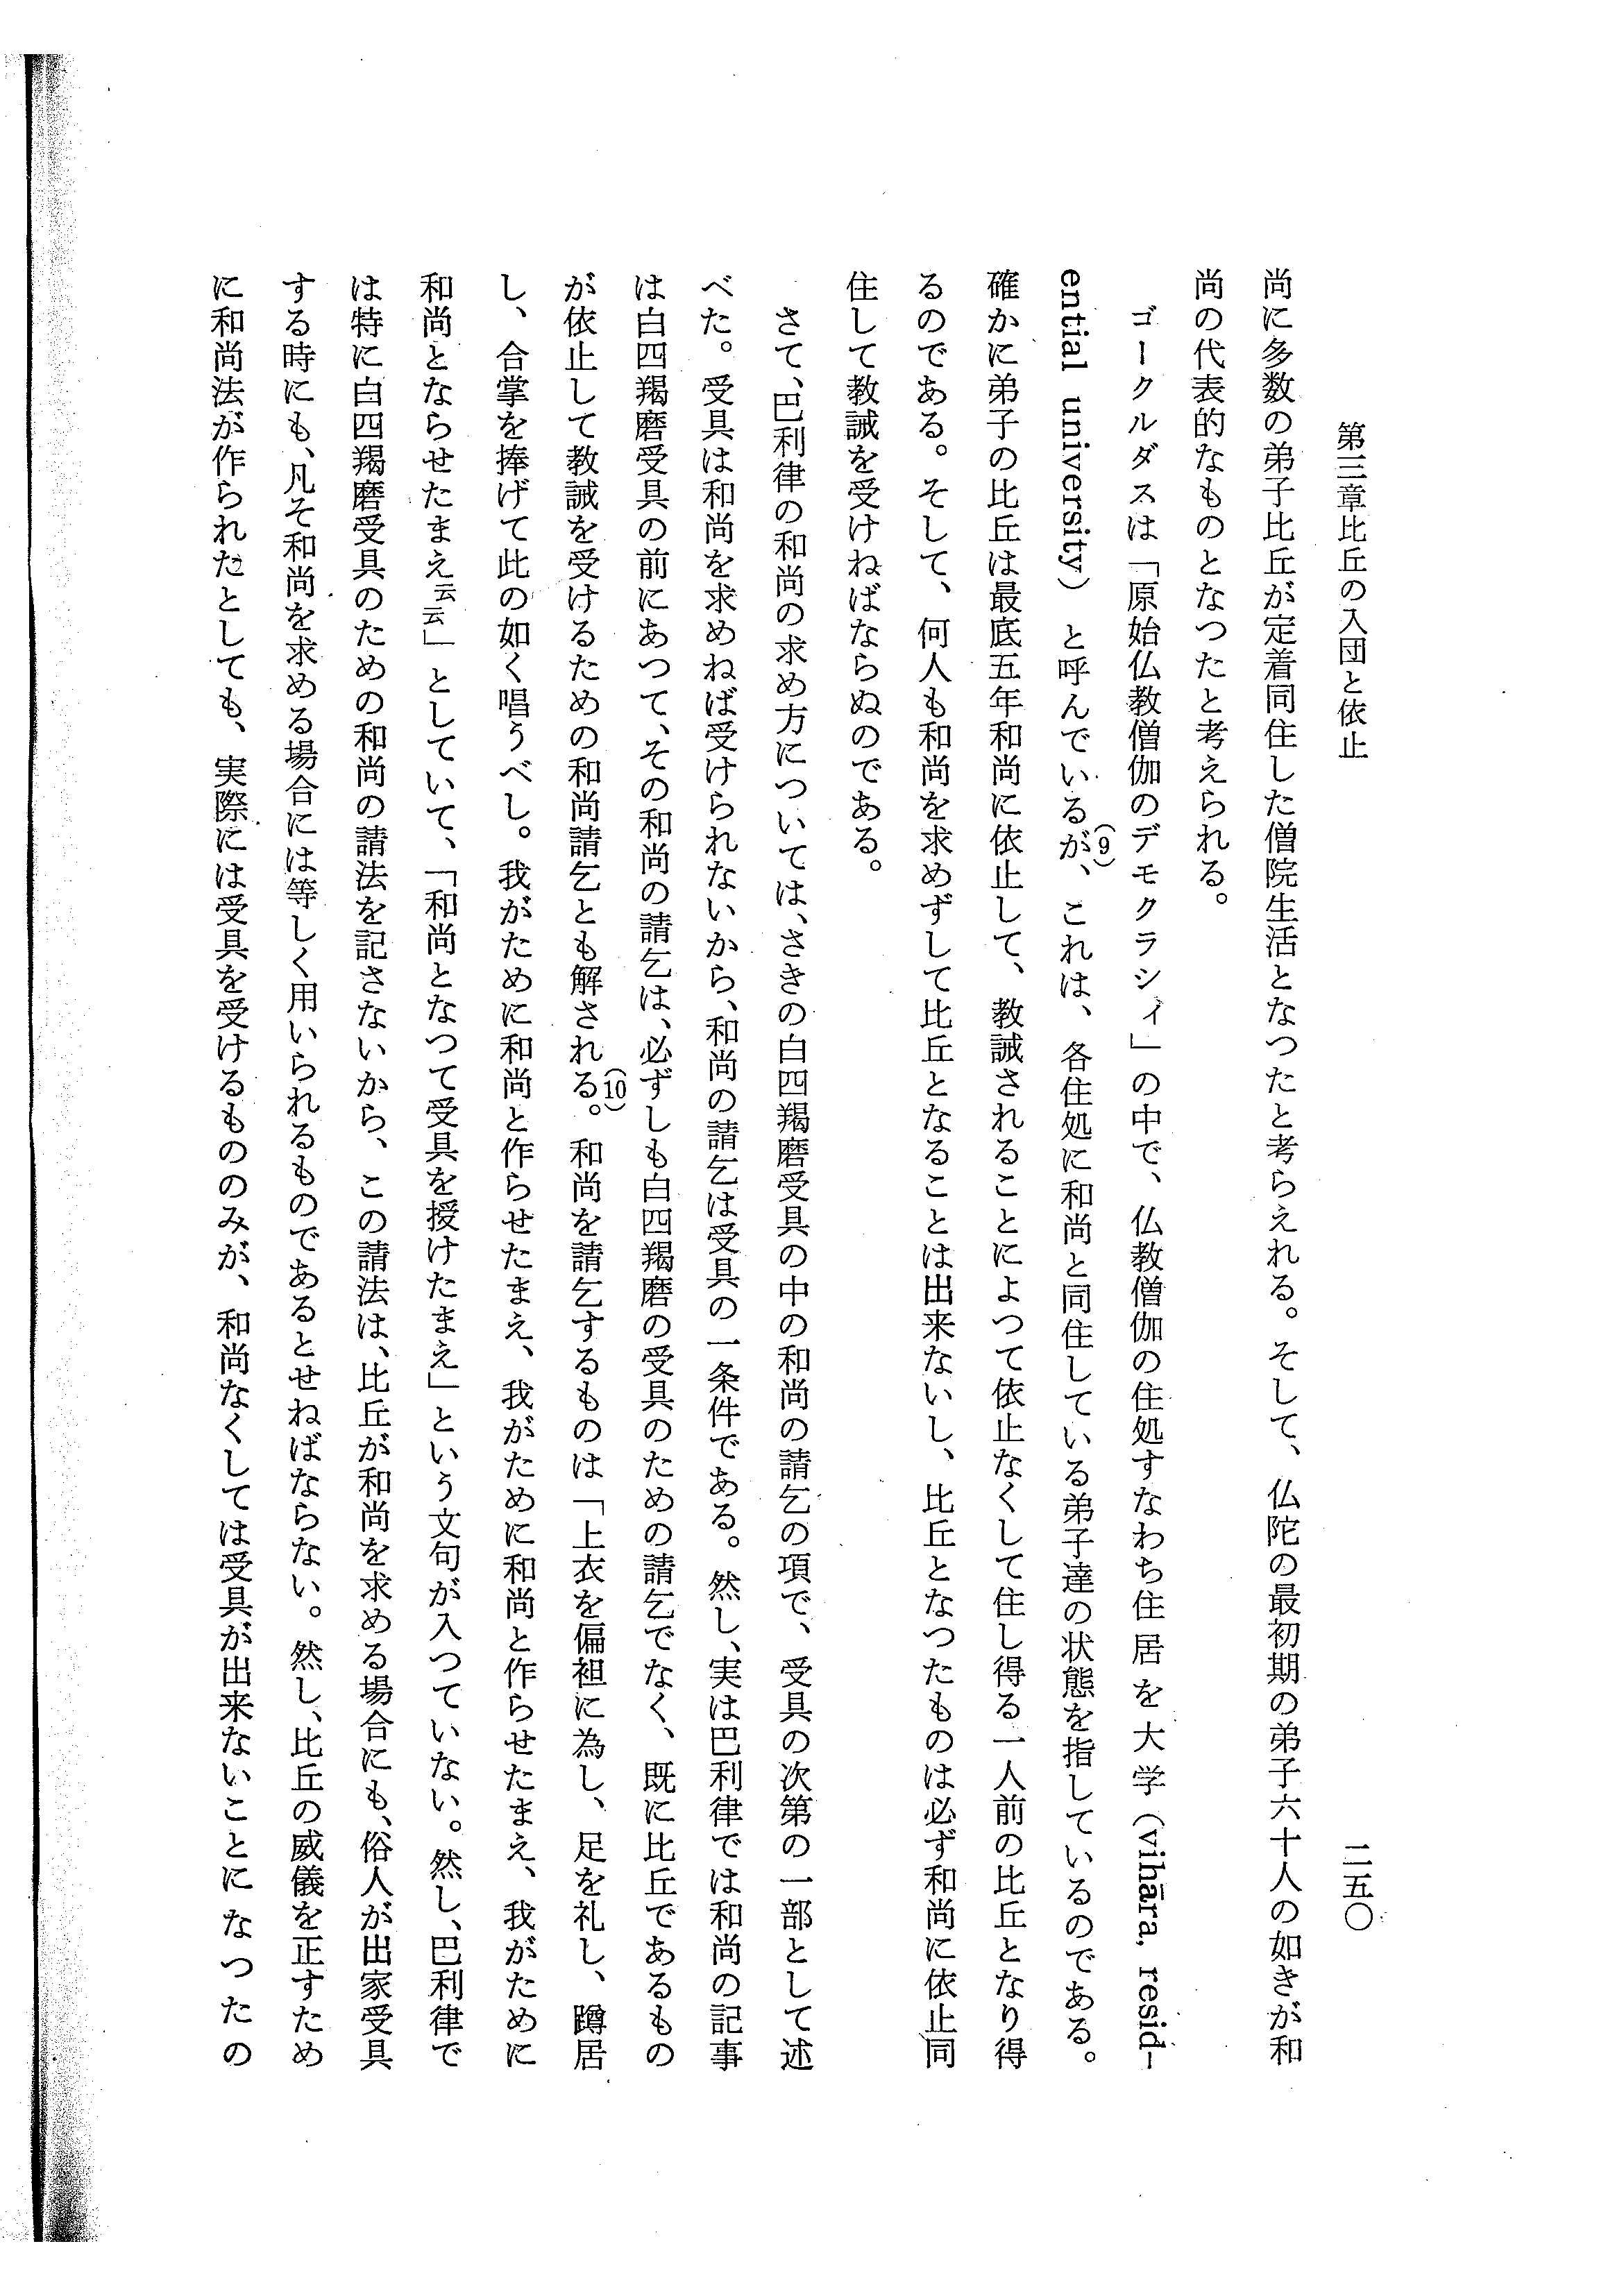 第三章比丘の入団と依止
二五〇
尚に多数の弟子比丘が定着同住した僧院生活となつたと考らえれる。そして、仏陀の最初期の弟子六十人の如きが和
尚の代表的なものとなつたと考えられる。
ゴークルダスは「原始仏教僧伽のデモクラシィ」の中で、仏教僧伽の住処すなわち住居を大学（vihāra, resid-
ential university）と呼んでいるが、(9)これは、各住処に和尚と同住している弟子達の状態を指しているのである。
確かに弟子の比丘は最底五年和尚に依止して、教誡されることによつて依止なくして住し得る一人前の比丘となり得
るのである。そして、何人も和尚を求めずして比丘となることは出来ないし、比丘となつたものは必ず和尚に依止同
住して教誡を受けねばならぬのである。
さて、巴利律の和尚の求め方については、さきの白四羯磨受具の中の和尚の請乞の項で、受具の次第の一部として述
べた。受具は和尚を求めねば受けられないから、和尚の請乞は受具の一条件である。然し、実は巴利律では和尚の記事
は白四羯磨受具の前にあつて、その和尚の請乞は、必ずしも白四羯磨の受具のための請乞でなく、既に比丘であるもの
が依止して教誡を受けるための和尚請乞とも解される。(10)和尚を請乞するものは「上衣を偏袒に為し、足を礼し、蹲居
し、合掌を捧げて此の如く唱うべし。我がために和尚と作らせたまえ、我がために和尚と作らせたまえ、我がために
和尚とならせたまえ云云」としていて、「和尚となつて受具を授けたまえ」という文句が入つていない。然し、巴利律で
は特に白四羯磨受具のための和尚の請法を記さないから、この請法は、比丘が和尚を求める場合にも、俗人が出家受具
する時にも、凡そ和尚を求める場合には等しく用いられるものであるとせねばならない。然し、比丘の威儀を正すため
に和尚法が作られたとしても、実際には受具を受けるもののみが、和尚なくしては受具が出来ないことになつたの